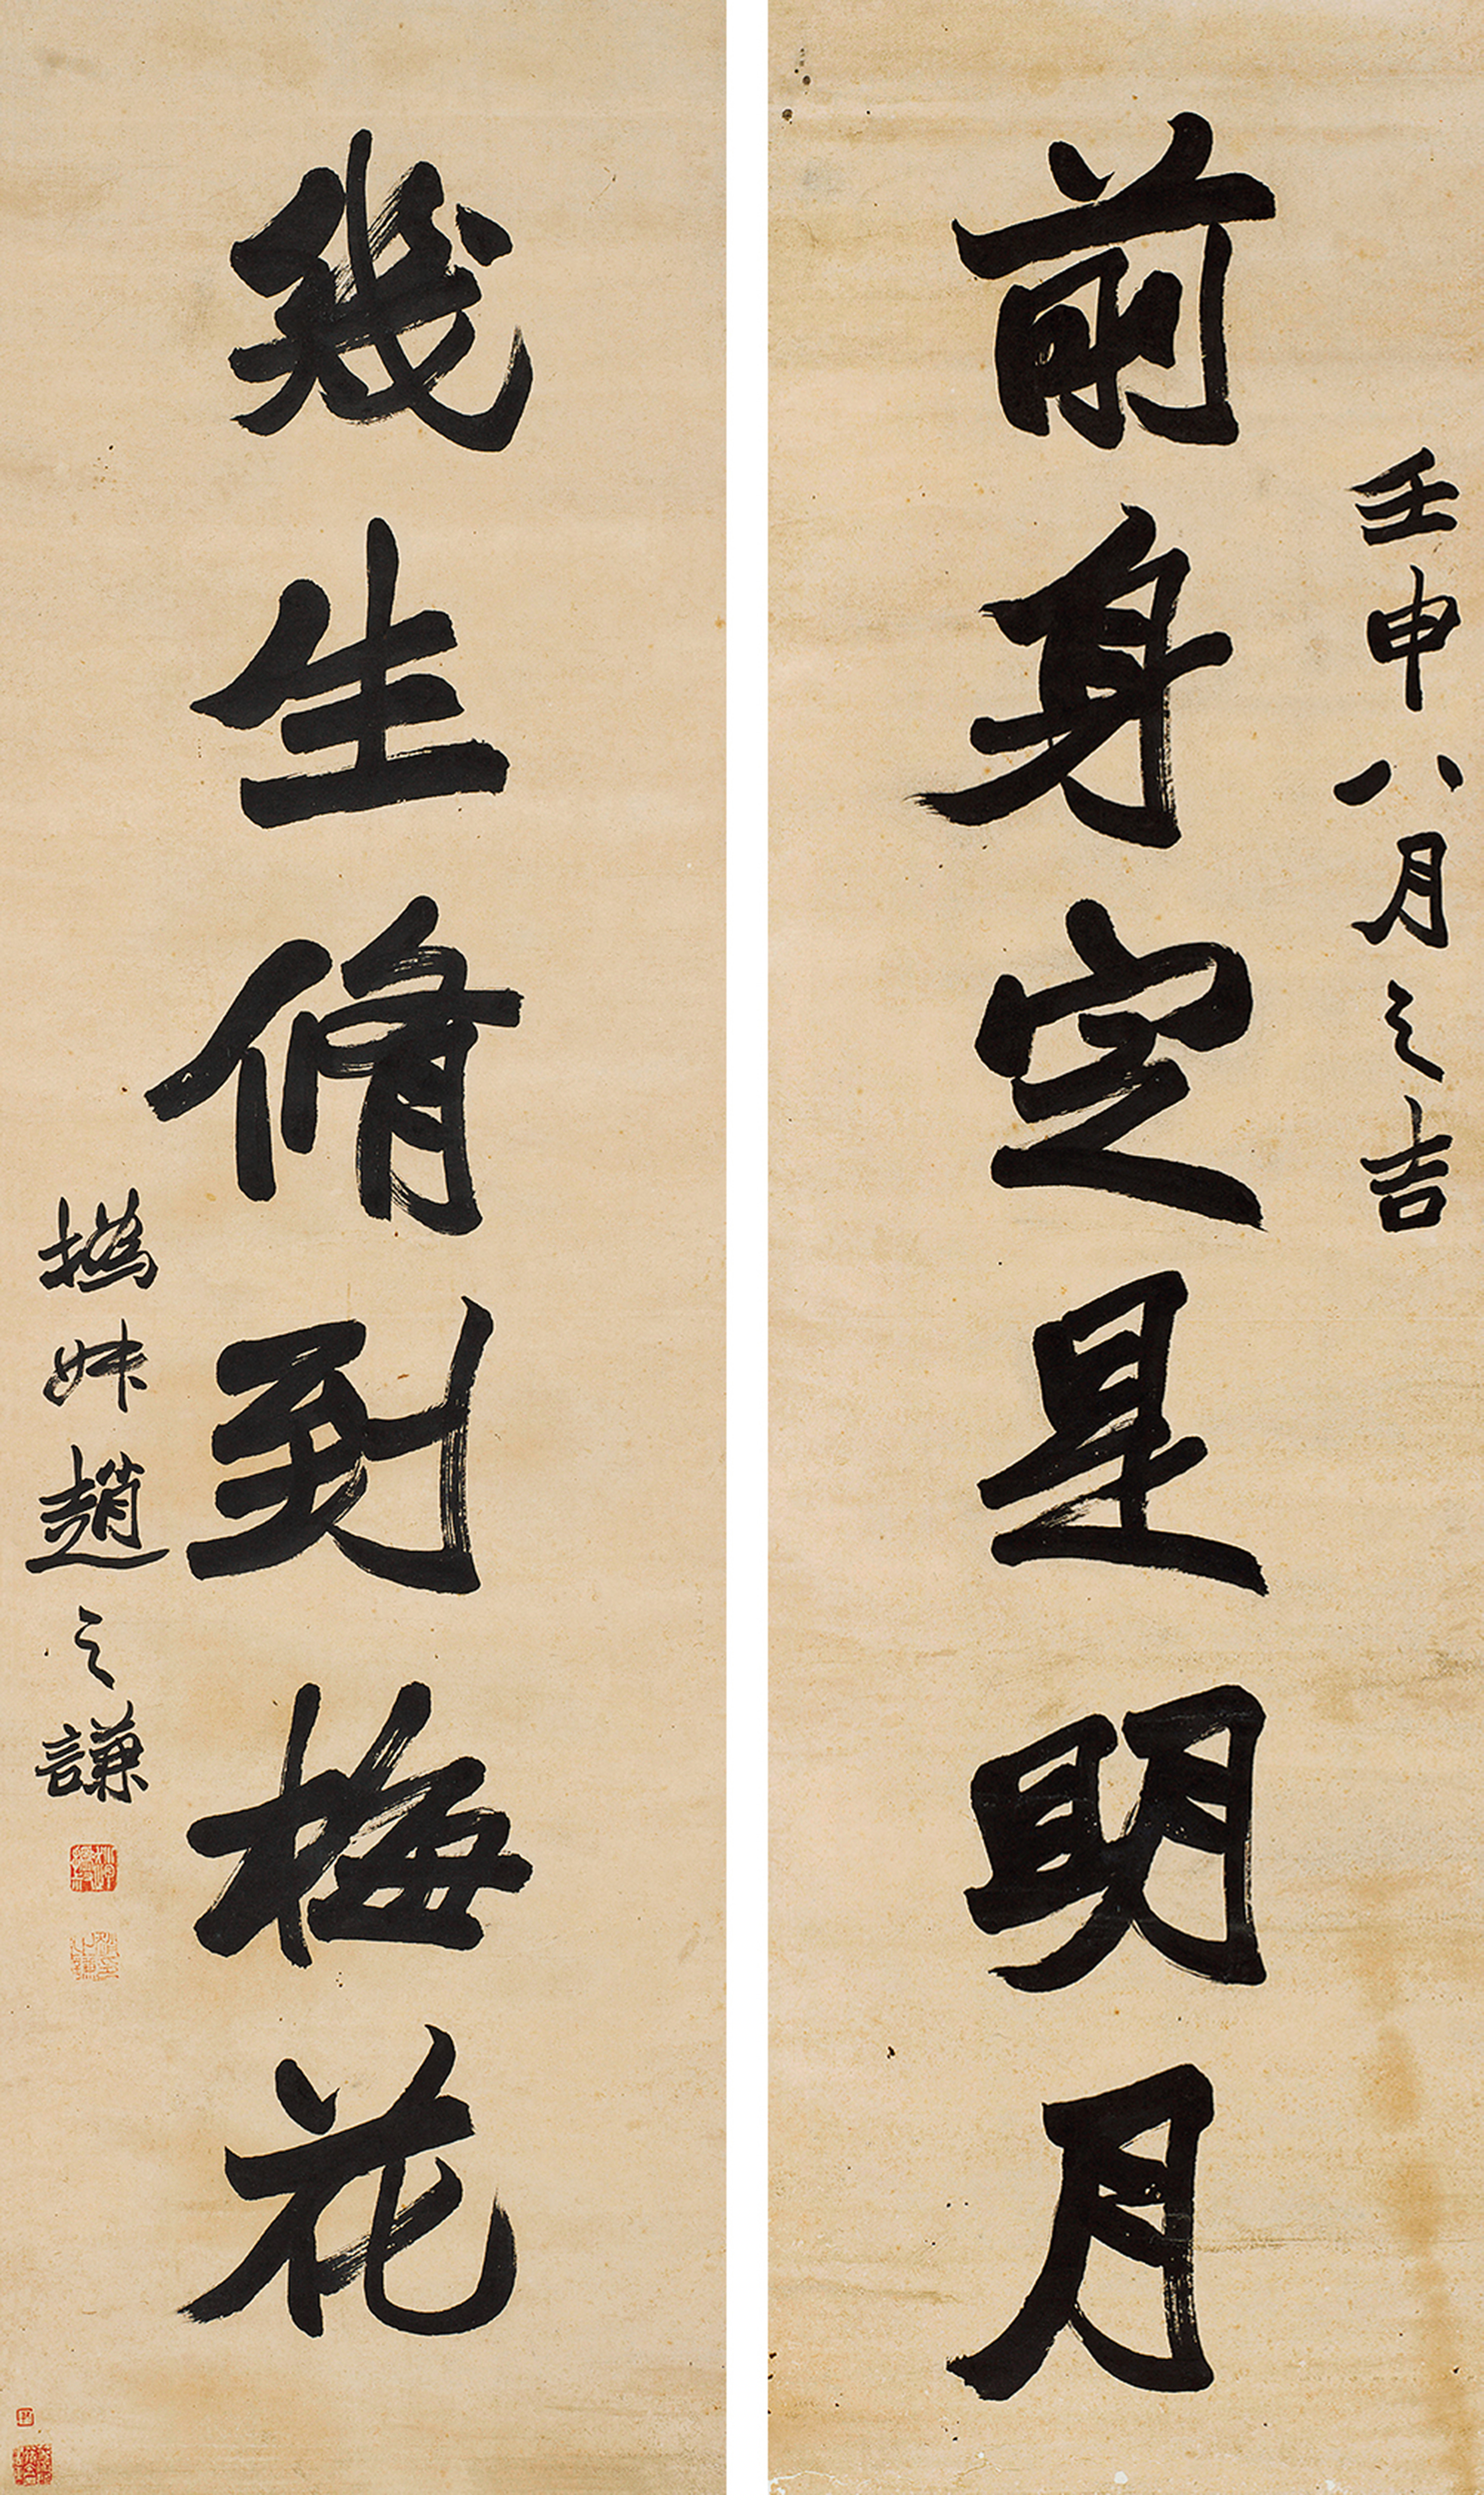 壬申八月之吉
前身定是明月
幾生脩到梅花
撝叔趙之謙